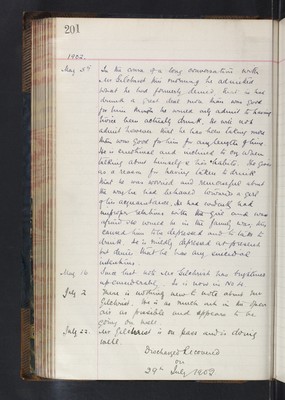 201
1902.
May 5th In the course of a long conversation with
Mr Gilchrist this morning he admitted
what he had formerly denied, that is has
drunk a great deal more than was good
for him though he would only admit to having
twice been actually drunk. He will not
admit however that he has been taking more
than was good for him for any length of time.
He is emotional and inclined to cry when
talking about himself & his habits. He gives
as a reason for having taken to drink
that he was worried and remorseful about
the way he had behaved towards a girl
of his acquaintance. He had evidently had
improper relations with the girl and was
afraid she would be in the family way, this
caused him to be depressed and to take to
drink. He is mildly depressed at present
but denies that he has any suicidal
intentions.
May 16. Since last note Mr Gilchrist has brightened
up considerably. He is now in No 4.
July 2 There is nothing new to note about Mr
Gilchrist. He is as much out in the open
air as possible and appears to be
going on well.
July 22. Mr Gilchrist is on pass and is doing
well.
Discharged Recovered
on
29th July 1902